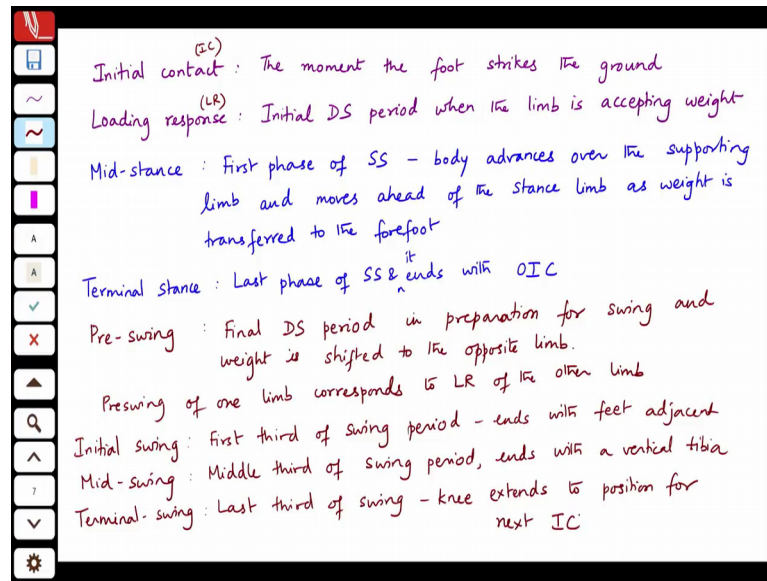 (IC)
Initial contact : The moment the foot strikes the ground
(LR)
Loading response : Initial DS period when the limb is accepting weight
Mid-stance : First phase of SS – body advances over the supporting
limb and moves ahead of the stance limb as weight is
transferred to the forefoot
it
Terminal stance : Last phase of SS & ^ ends with OIC
Pre-swing : Final DS period in preparation for swing and
weight is shifted to the opposite limb.
Preswing of one limb corresponds to LR of the other limb
Initial swing : First third of swing period – ends with feet adjacent
Mid-swing : Middle third of swing period, ends with a vertical tibia
Terminal-swing : Last third of swing – knee extends to position for
next IC
A
A
7